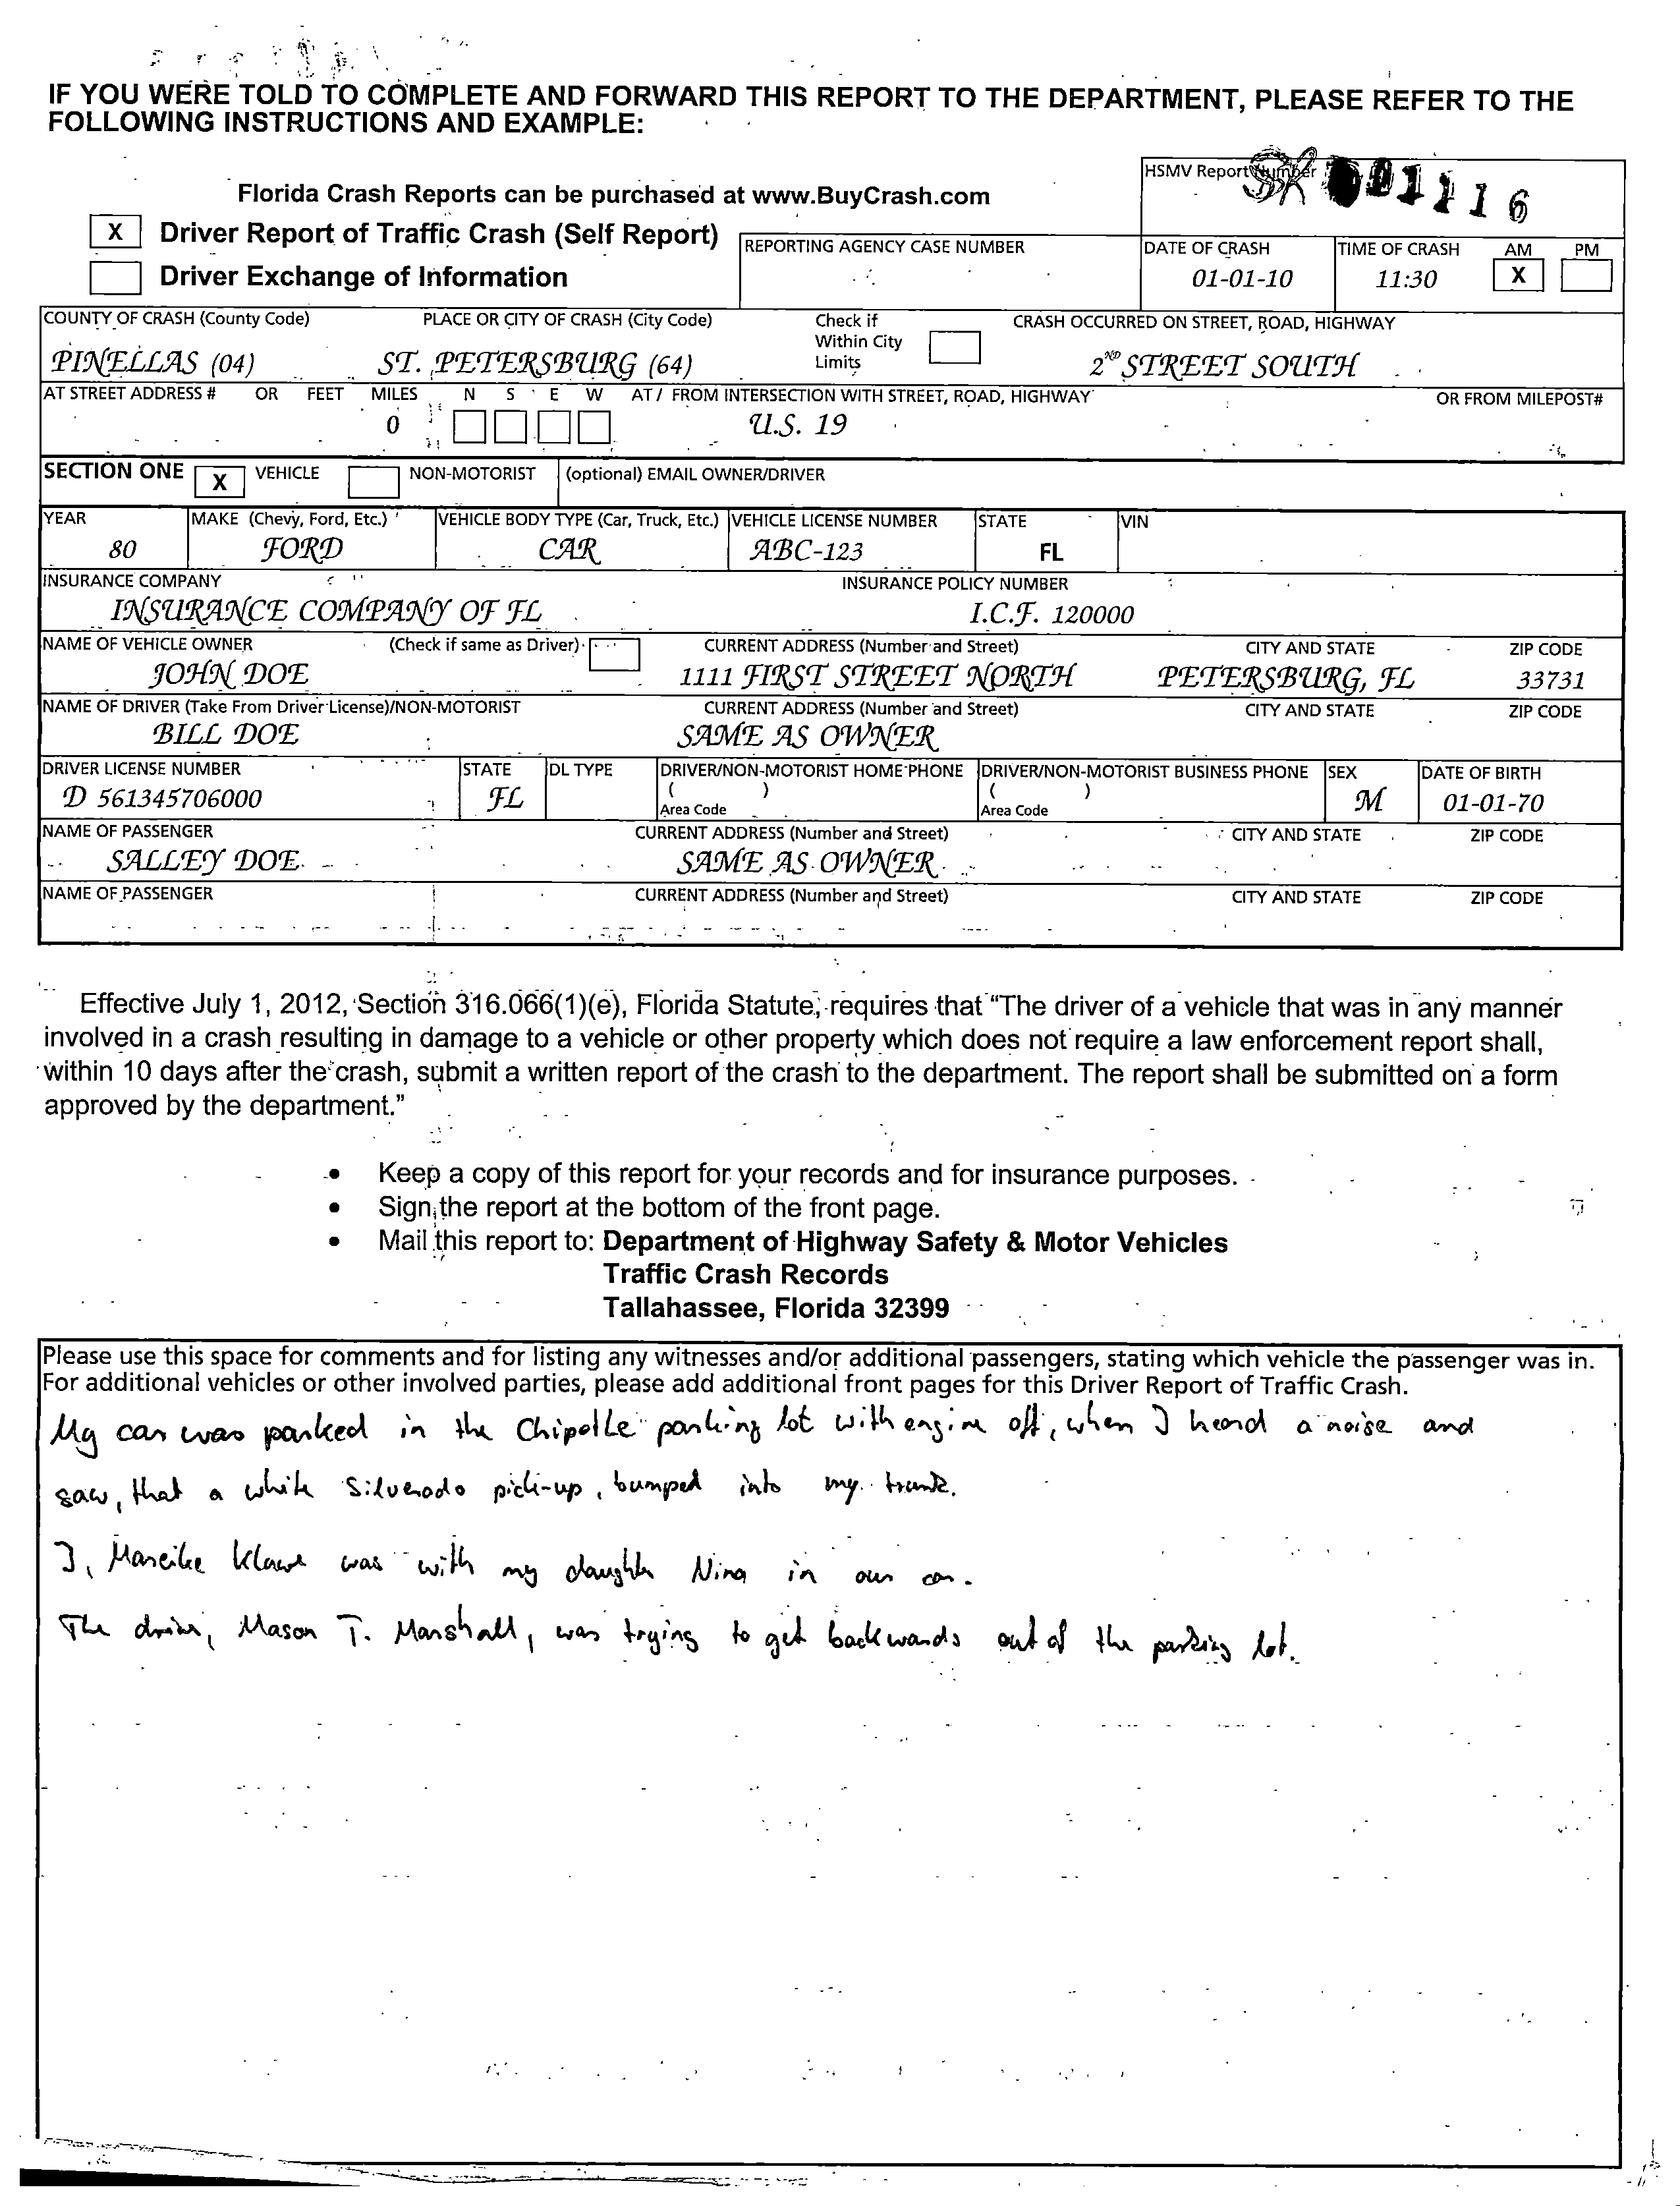 IF YOU WERE TOLD TO COMPLETE AND FORWARD THIS REPORT TO THE DEPARTMENT, PLEASE REFER TO THE
FOLLOWING INSTRUCTIONS AND EXAMPLE:
HSMV Report Number
1116
Florida Crash Reports can be purchased at www.BuyCrash.com
X Driver Report of Traffic Crash (Self Report)
Driver Exchange of Information
REPORTING AGENCY CASE NUMBER DATE OF CRASH TIME OF CRASH AM PM
01-01-10 11:30 X
COUNTY OF CRASH (County Code) PLACE OR CITY OF CRASH (City Code) Check if Within City Limits CRASH OCCURRED ON STREET, ROAD, HIGHWAY
PINELLAS (04) ST. PETERSBURG (64) 2ND STREET SOUTH
AT STREET ADDRESS # OR FEET MILES N S E W AT / FROM INTERSECTION WITH STREET, ROAD, HIGHWAY OR FROM MILEPOST#
0 U.S. 19
SECTION ONE X VEHICLE NON-MOTORIST (optional) EMAIL OWNER/DRIVER
YEAR MAKE (Chevy, Ford, Etc.) VEHICLE BODY TYPE (Car, Truck, Etc.) VEHICLE LICENSE NUMBER STATE VIN
80 FORD CAR ABC-123 FL
INSURANCE COMPANY INSURANCE POLICY NUMBER
INSURANCE COMPANY OF FL I.C.F. 120000
NAME OF VEHICLE OWNER (Check if same as Driver) CURRENT ADDRESS (Number and Street) CITY AND STATE ZIP CODE
JOHN DOE 1111 FIRST STREET NORTH PETERSBURG, FL 33731
NAME OF DRIVER (Take From Driver License)/NON-MOTORIST CURRENT ADDRESS (Number and Street) CITY AND STATE ZIP CODE
BILL DOE SAME AS OWNER
DRIVER LICENSE NUMBER STATE DL TYPE DRIVER/NON-MOTORIST HOME PHONE DRIVER/NON-MOTORIST BUSINESS PHONE SEX DATE OF BIRTH
D 561345706000 FL ( ) Area Code ( ) Area Code M 01-01-70
NAME OF PASSENGER CURRENT ADDRESS (Number and Street) CITY AND STATE ZIP CODE
SALLEY DOE SAME AS OWNER
NAME OF PASSENGER CURRENT ADDRESS (Number and Street) CITY AND STATE ZIP CODE
Effective July 1, 2012, Section 316.066(1)(e), Florida Statute, requires that “The driver of a vehicle that was in any manner
involved in a crash resulting in damage to a vehicle or other property which does not require a law enforcement report shall,
within 10 days after the crash, submit a written report of the crash to the department. The report shall be submitted on a form
approved by the department.”
• Keep a copy of this report for your records and for insurance purposes.
• Sign the report at the bottom of the front page.
• Mail this report to: Department of Highway Safety & Motor Vehicles
Traffic Crash Records
Tallahassee, Florida 32399
Please use this space for comments and for listing any witnesses and/or additional passengers, stating which vehicle the passenger was in.
For additional vehicles or other involved parties, please add additional front pages for this Driver Report of Traffic Crash.
My car was parked in the Chipotle parking lot with engine off, when I heard a noise and
saw, that a white Silverado pick-up, bumped into my trunk.
I, Mareike was with my daughter Nina in our car.
The driver, Mason T. Marshall, was trying to get backwards out of the parking lot.